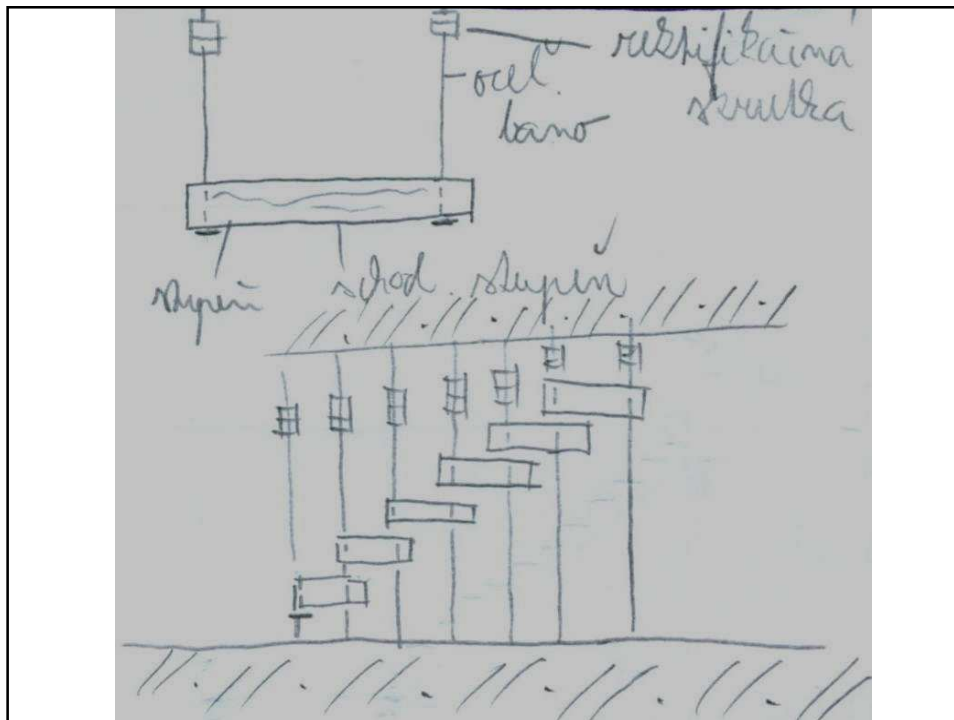 rektifikačná
skrutka
oceľ.
lano
stupeň schod. stupeň